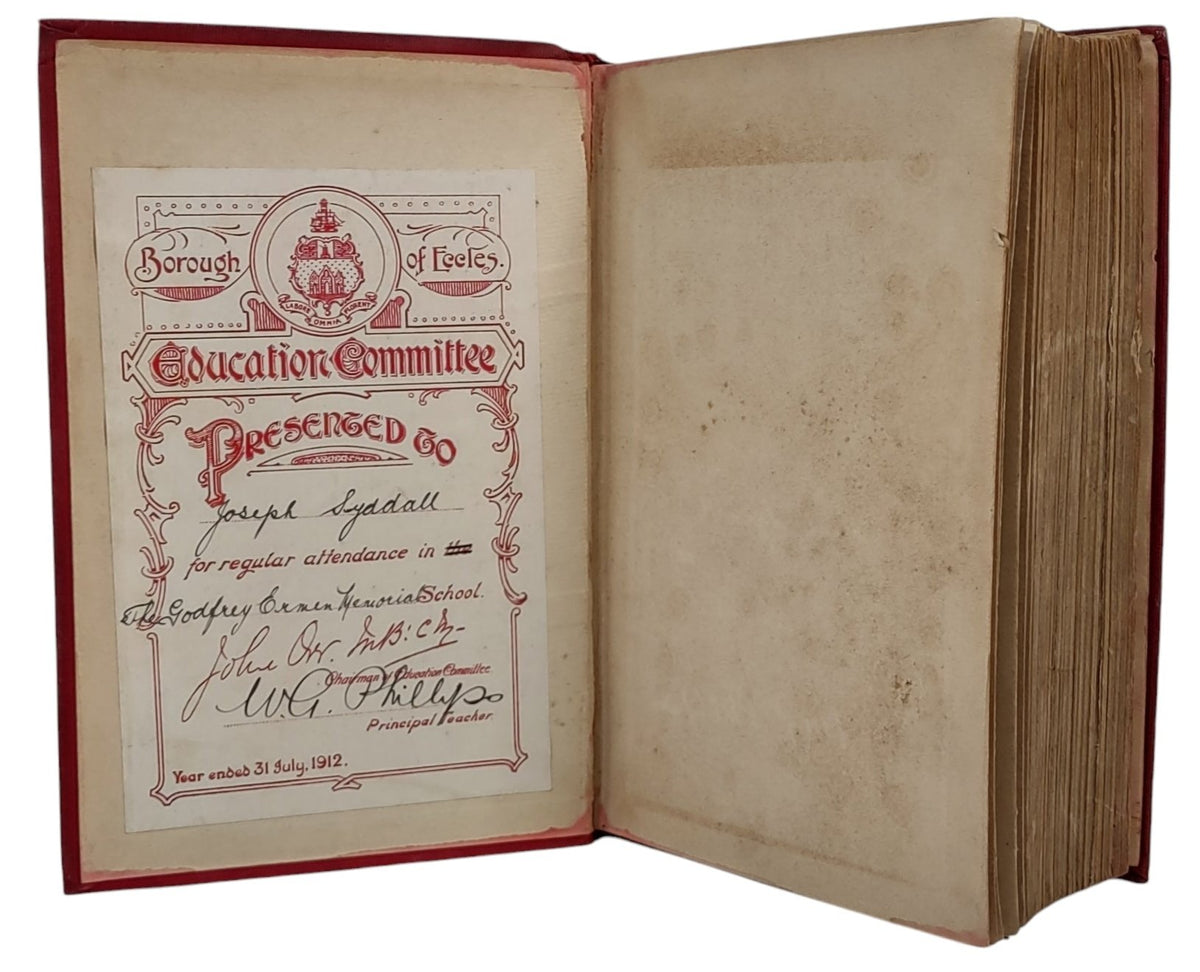 Borough of Eccles.
LABORE OMNIA FLORENT
Education Committee
PRESENTED TO
Joseph Syddall
for regular attendance in the
The Godfrey Ermen Memorial School.
John Orr. M.B: C M-
Chairman of Education Committee.
W. G. Phillips
Principal Teacher.
Year ended 31 July, 1912.